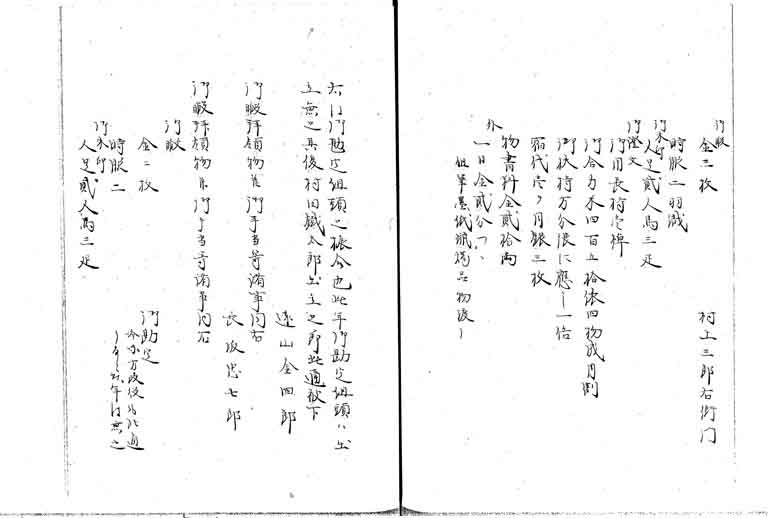 御暇
金三枚
時服二羽織
村上三郎右衛門
御朱印
人足貳人馬三疋
御證文
御用長持壱棹
御合力米四百五拾俵四物成月割
御扶持方分限に應し一倍
宿代壱ヶ月銀三枚
物書料金貳拾両
外
一日金貳分つゝ
但筆墨紙蝋燭品物渡り
右は御勘定組頭之振合也此年御勘定組頭は出
立無之其後村田鐵太郎出立之節此通被下
遠山金四郎
御暇拝領物并御手当等諸事同右
長坂忠七郎
御暇拝領物并御手当等諸事同右
御暇
金二枚
時服二
御朱印
人足貳人馬三疋
御勘定